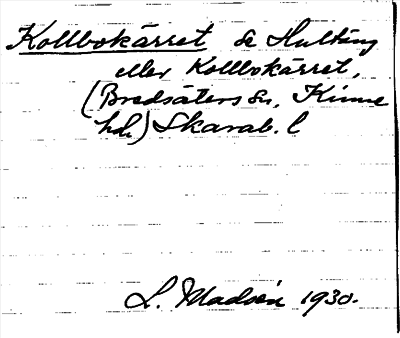 Kollbokärret se Hultäng
eller Kollbokärret,
(Bredsäters sn, Kinne
hd.) Skarab. l
L. Madsén 1930.